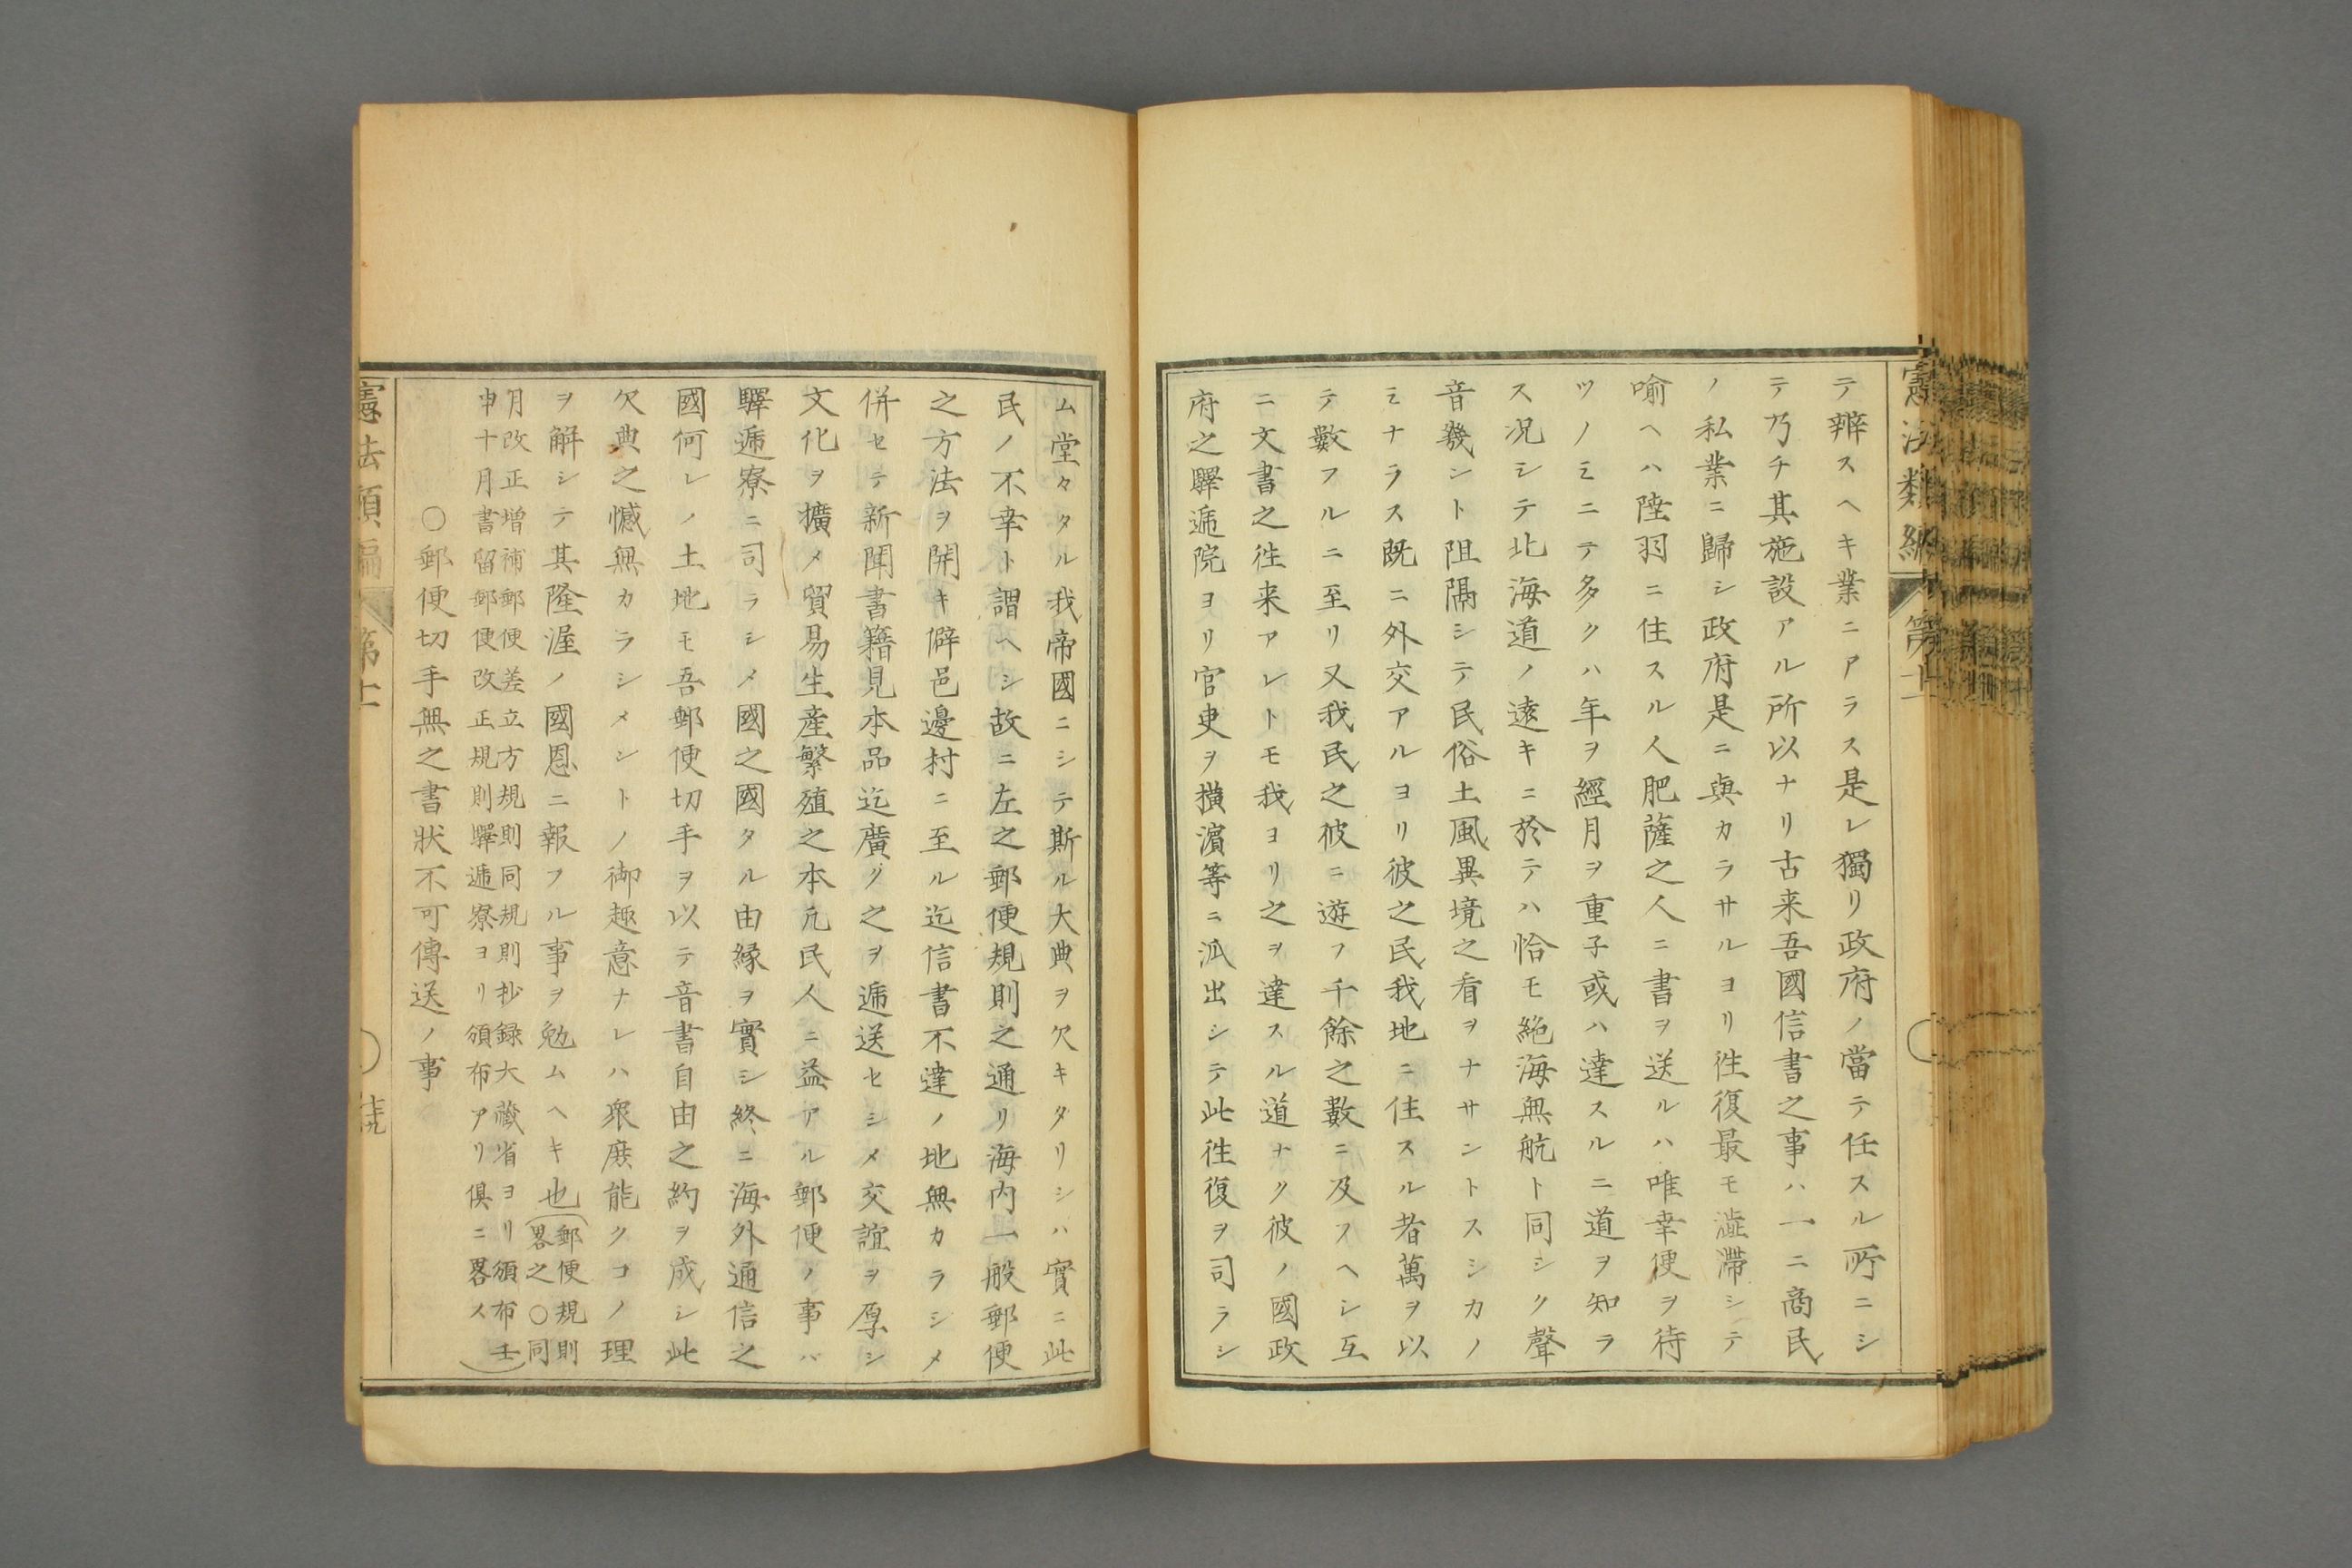 テ辨スヘキ業ニアラス是レ獨リ政府ノ當テ任スル所ニシ
テ乃チ其施設アル所以ナリ古来吾國信書之事ハ一ニ商民
ノ私業ニ歸シ政府是ニ與カラサルヨリ徃復最モ澁滯シテ
喩ヘハ陸羽ニ住スル人肥薩之人ニ書ヲ送ルハ唯幸便ヲ待
ツノミニテ多クハ年ヲ經月ヲ重子或ハ達スルニ道ヲ知ラ
ス况シテ北海道ノ遠キニ於テハ恰モ絶海無航ト同シク聲
音幾ント阻隔シテ民俗土風異境之看ヲナサントスシカノ
ミナラス既ニ外交アルヨリ彼之民我地ニ住スル者萬ヲ以
テ數フルニ至リ又我民之彼ニ遊フ千餘之數ニ及フヘシ互
ニ文書之徃来アレトモ我ヨリ之ヲ達スル道ナク彼ノ國政
府之驛逓院ヨリ官吏ヲ横濱等ニ派出シテ此徃復ヲ司ラシ
憲法類編 第十
ム堂々タル我帝國ニシテ斯ル大典ヲ欠キタリシハ實ニ此
民ノ不幸ト謂ヘシ故ニ左之郵便規則之通リ海内一般郵便
之方法ヲ開キ僻邑邊村ニ至ル迄信書不達ノ地無カラシメ
併セテ新聞書籍見本品迄廣ク之ヲ逓送セシメ交誼ヲ厚シ
文化ヲ擴メ貿易生産繁殖之本凢民人ニ益アル郵便ノ事ハ
驛逓寮ニ司ラシメ國之國タル由縁ヲ實シ終ニ海外通信之
國何レノ土地モ吾郵便切手ヲ以テ音書自由之約ヲ成シ此
欠典之憾無カラシメントノ御趣意ナレハ衆庶能クコノ理
ヲ解シテ其隆渥ノ國恩ニ報フル事ヲ勉ムヘキ也(郵便規則
畧之○同
月改正增補郵便差立方規則同規則抄録大藏省ヨリ頒布壬
申十月書留郵便改正規則驛逓寮ヨリ頒布アリ俱ニ畧ス)
○郵便切手無之書狀不可傳送ノ事
憲法類編 第十